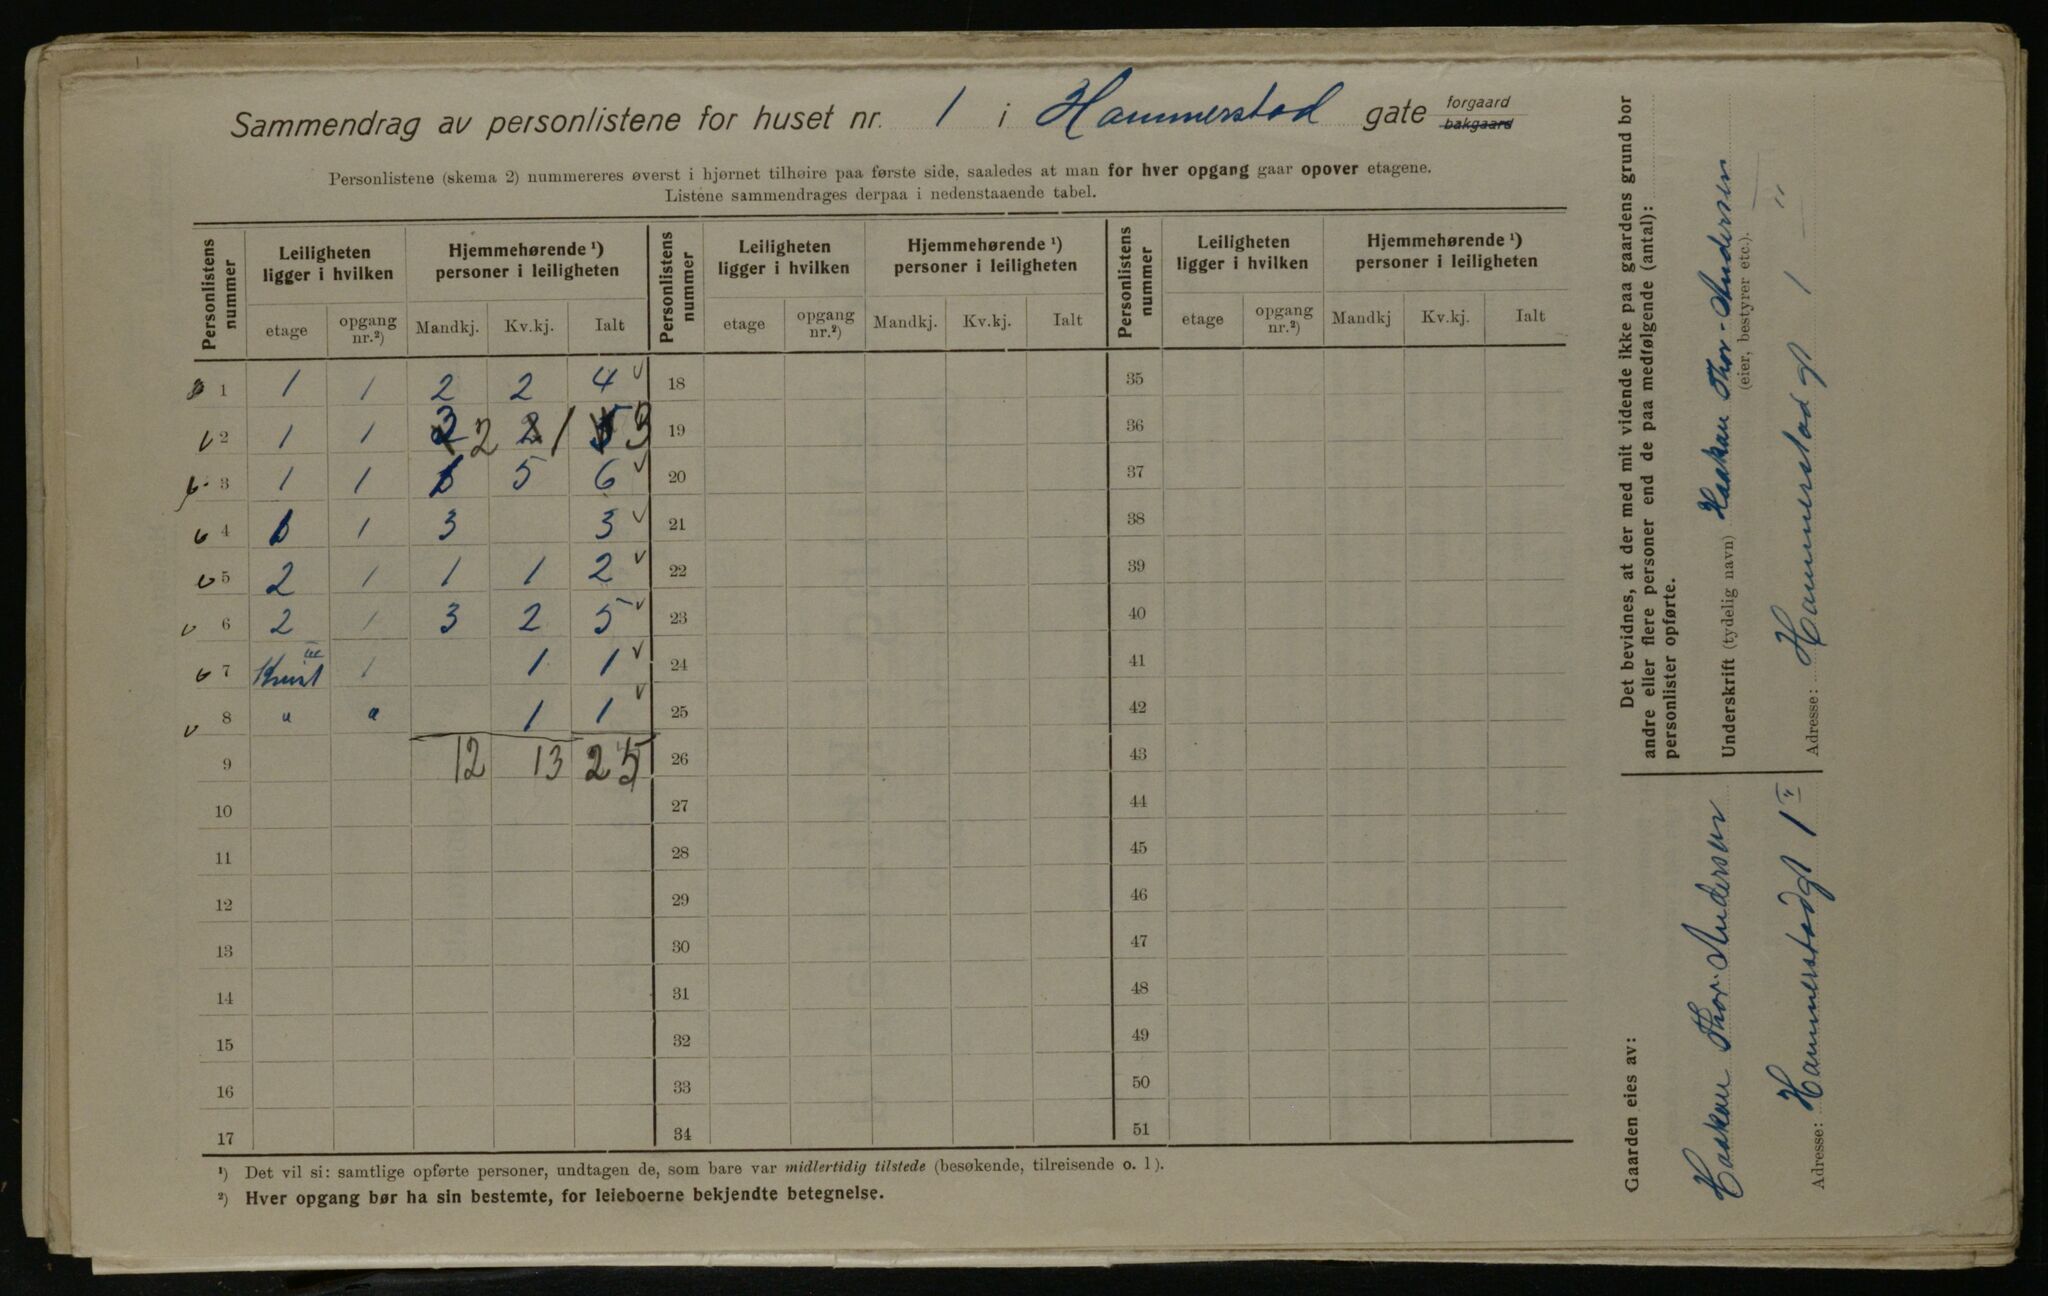 Sammendrag av personlistene for huset nr. 1 i Hammerstad gate forgaard bakgaard
Personlistene (skema 2) nummereres øverst i hjørnet tilhøire paa første side, saaledes at man for hver opgang gaar opover etagene.
Listene sammendrages derpaa i nedenstaaende tabel.
Personlistens nummer | Leiligheten ligger i hvilken | Hjemmehørende ¹) personer i leiligheten | Personlistens nummer | Leiligheten ligger i hvilken | Hjemmehørende ¹) personer i leiligheten | Personlistens nummer | Leiligheten ligger i hvilken | Hjemmehørende ¹) personer i leiligheten
etage | opgang nr.²) | Mandkj. | Kv.kj. | Ialt | etage | opgang nr.²) | Mandkj. | Kv.kj. | Ialt | etage | opgang nr.²) | Mandkj | Kv.kj. | Ialt
1 | 1 | 1 | 2 | 2 | 4 | 18 | 35
2 | 1 | 1 | 2 | 1 | 3 | 19 | 36
3 | 1 | 1 | 1 | 5 | 6 | 20 | 37
4 | 1 | 3 | 3 | 21 | 38
5 | 2 | 1 | 1 | 1 | 2 | 22 | 39
6 | 2 | 1 | 3 | 2 | 5 | 23 | 40
7 | Kvist | 1 | 1 | 1 | 24 | 41
8 | " | " | 1 | 1 | 25 | 42
9 | 12 | 13 | 25 | 26 | 43
10 | 27 | 44
11 | 28 | 45
12 | 29 | 46
13 | 30 | 47
14 | 31 | 48
15 | 32 | 49
16 | 33 | 50
17 | 34 | 51
¹) Det vil si: samtlige opførte personer, undtagen de, som bare var midlertidig tilstede (besøkende, tilreisende o. l).
²) Hver opgang bør ha sin bestemte, for leieboerne bekjendte betegnelse.
Det bevidnes, at der med mit vidende ikke paa gaardens grund bor
andre eller flere personer end de paa medfølgende (antal):
personlister opførte.
Underskrift (tydelig navn) Haakan Thor-Andersen
(eier, bestyrer etc.).
Adresse: Hammerstadgt 1 "
Gaarden eies av:
Haakan Thor-Andersen
Adresse: Hammerstadgt 1 I